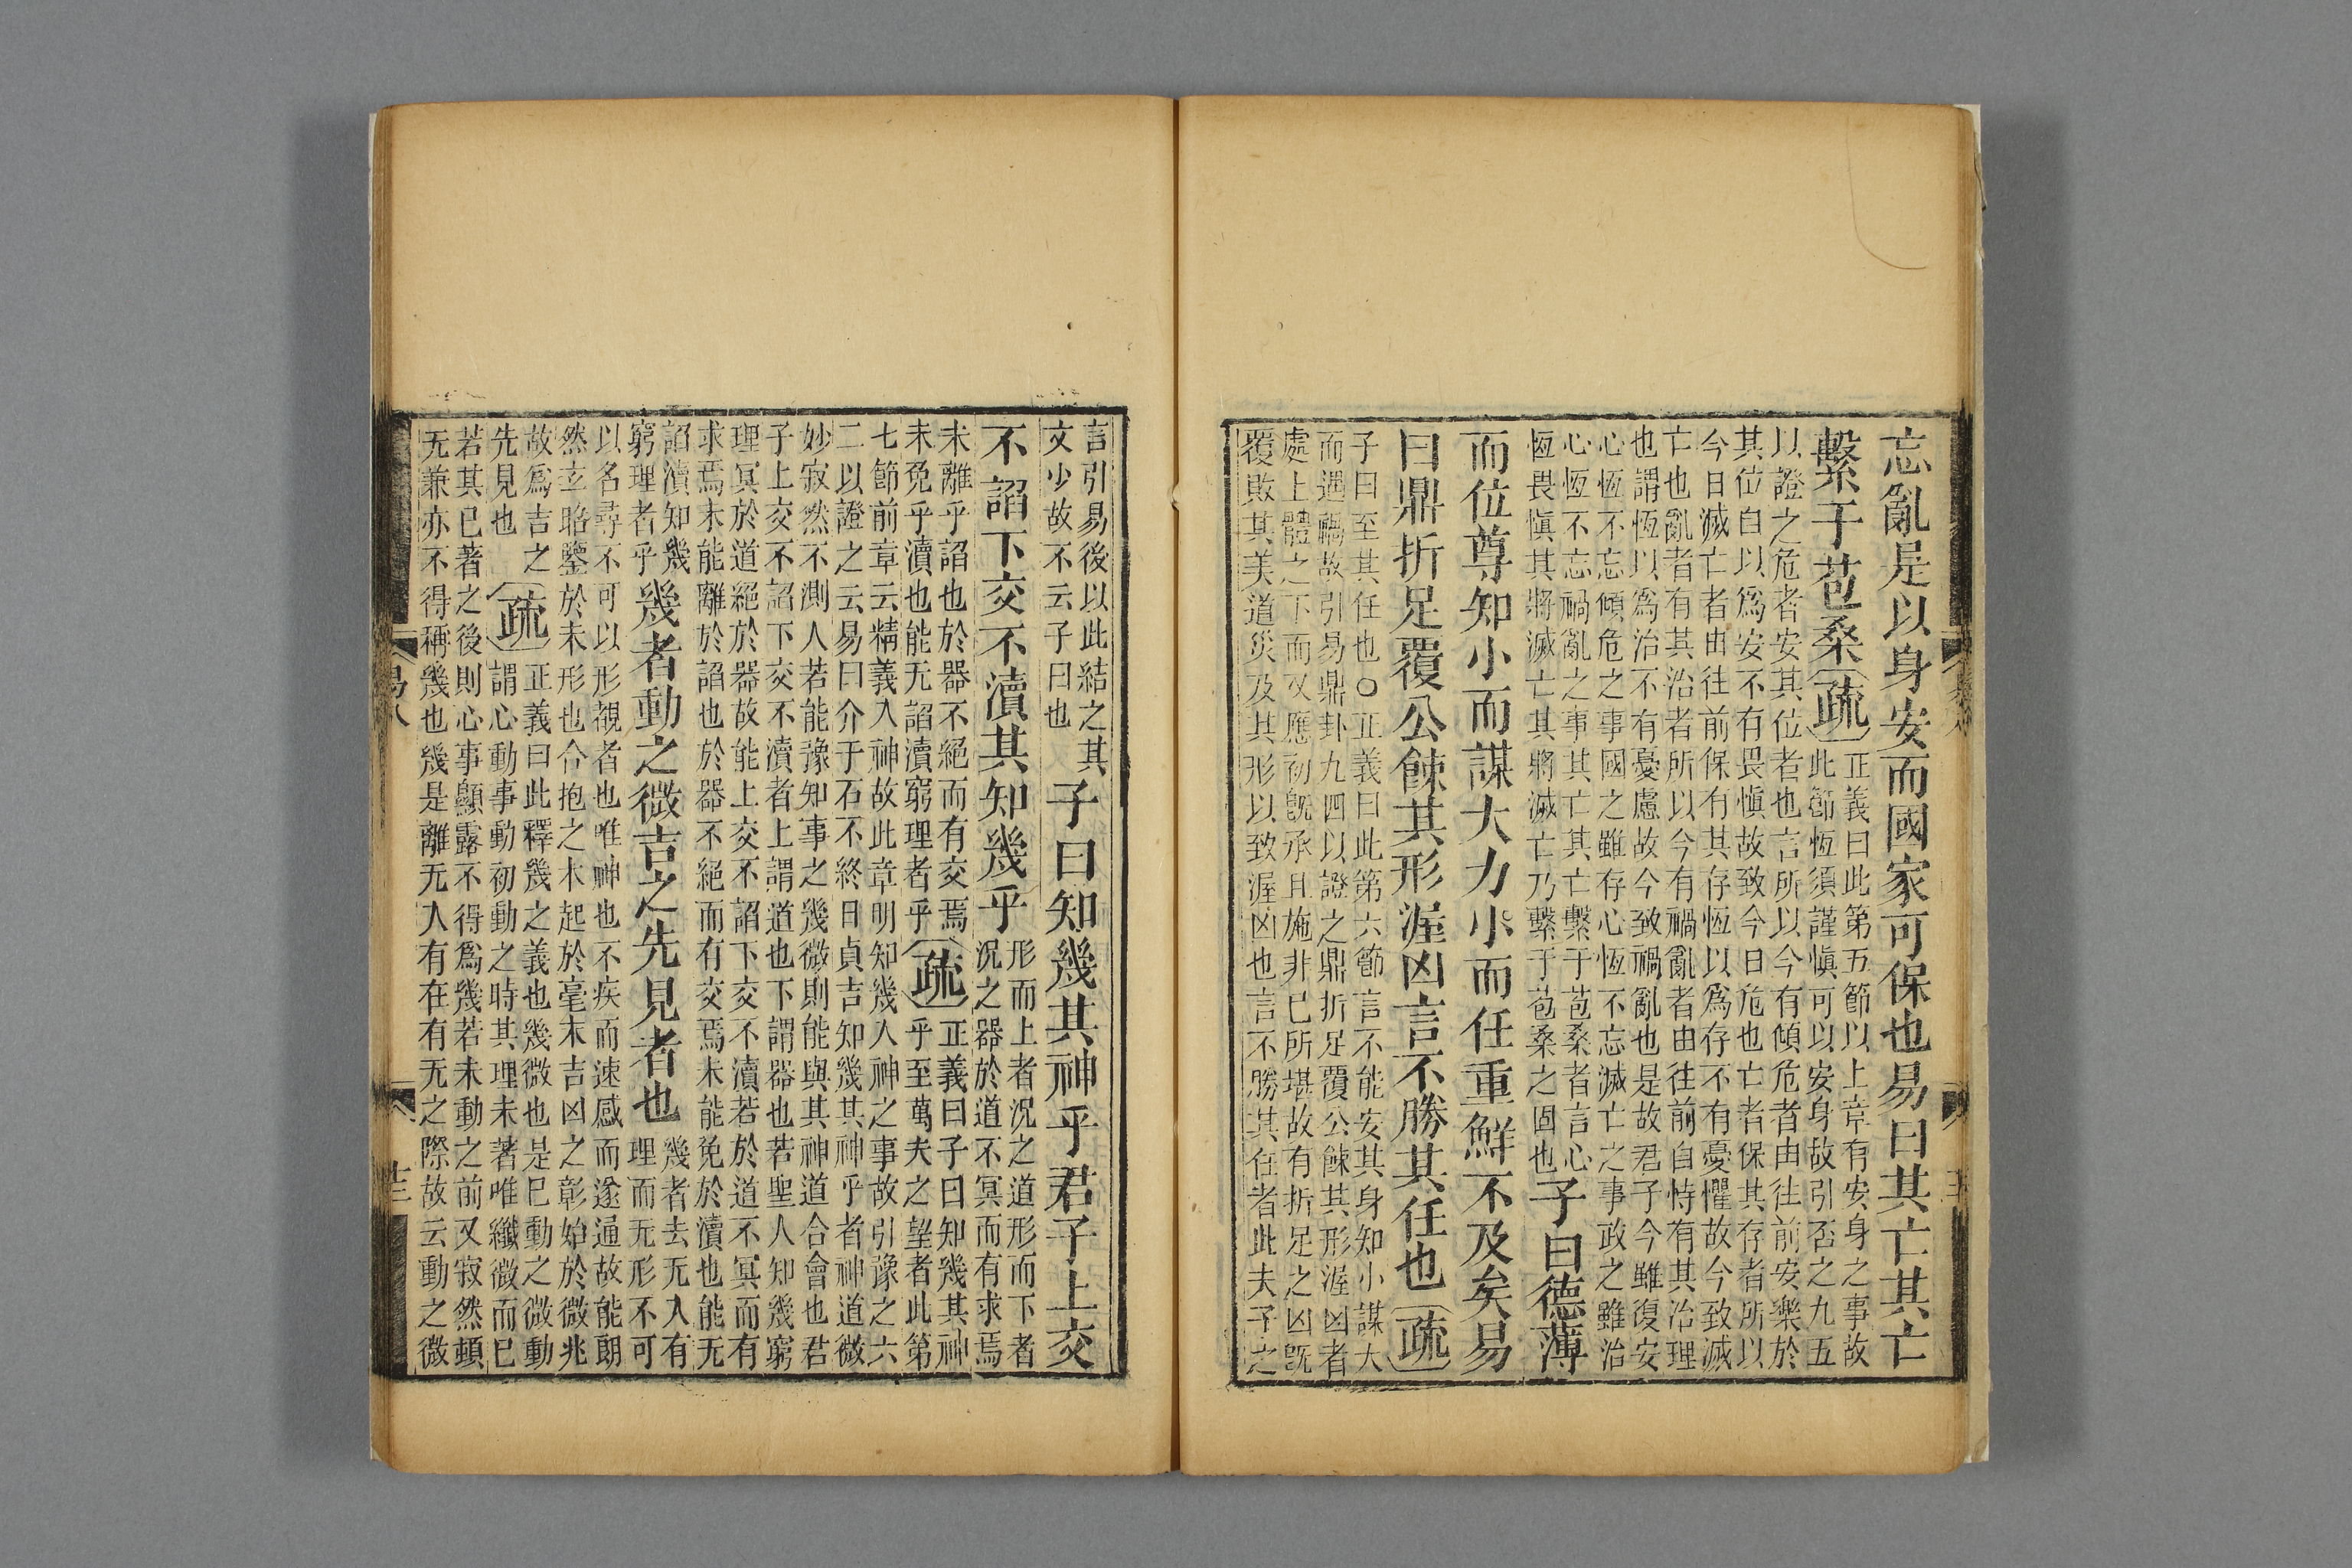 忘亂是以身安而國家可保也易曰其亡其亡
繫于苞桑疏正義曰此第五節以上章有安身之事故
此節恆須謹愼可以安身故引否之九五
以證之危者安其位者也言所以今有傾危者由往前安樂於
其位自以爲安不有畏愼故致今日危也亡者保其存者所以
今日滅亡者由往前保有其存恆以爲存不有憂懼故今致滅
亡也亂者有其治者所以今有禍亂者由往前自恃有其治理
也謂恆以爲治不有憂慮故今致禍亂也是故君子今雖復安
心恆不忘傾危之事國之雖存心恆不忘滅亡之事政之雖治
心恆不忘禍亂之事其亡其亡繫于苞桑者言心
恆畏愼其將滅亡其將滅亡乃繫于苞桑之固也子曰德薄
而位尊知小而謀大力小而任重鮮不及矣易
曰鼎折足覆公餗其形渥凶言不勝其任也疏
子曰至其任也○正義曰此第六節言不能安其身知小謀大
而遇禍故引易鼎卦九四以證之鼎折足覆公餗其形渥凶者
處上體之下而又應初旣承且施非已所堪故有折足之凶旣
覆敗其美道災及其形以致渥凶也言不勝其任者此夫子之
言引易後以此結之其
文少故不云子曰也子曰知幾其神乎君子上交
不諂下交不瀆其知幾乎形而上者況之道形而下者
況之器於道不冥而有求焉
未離乎諂也於器不絕而有交焉
未免乎瀆也能无諂瀆窮理者乎疏正義曰子曰知幾其神
乎至萬夫之望者此第
七節前章云精義入神故此章明知幾入神之事故引豫之六
二以證之云易曰介于石不終日貞吉知幾其神乎者神道微
妙寂然不測人若能豫知事之幾微則能與其神道合會也君
子上交不諂下交不瀆者上謂道也下謂器也若聖人知幾窮
理冥於道絕於器故能上交不諂下交不瀆若於道不冥而有
求焉未能離於諂也於器不絕而有交焉未能免於瀆也能无
諂瀆知幾
窮理者乎幾者動之微吉之先見者也幾者去无入有
理而无形不可
以名尋不可以形覩者也唯神也不疾而速感而遂通故能朗
然玄昭鑒於未形也合抱之木起於毫末吉凶之彰始於微兆
故爲吉之
先見也疏正義曰此釋幾之義也幾微也是已動之微動
謂心動事動初動之時其理未著唯纖微而已
若其已著之後則心事顯露不得爲幾若未動之前又寂然頓
无兼亦不得稱幾也幾是離无入有在有无之際故云動之微